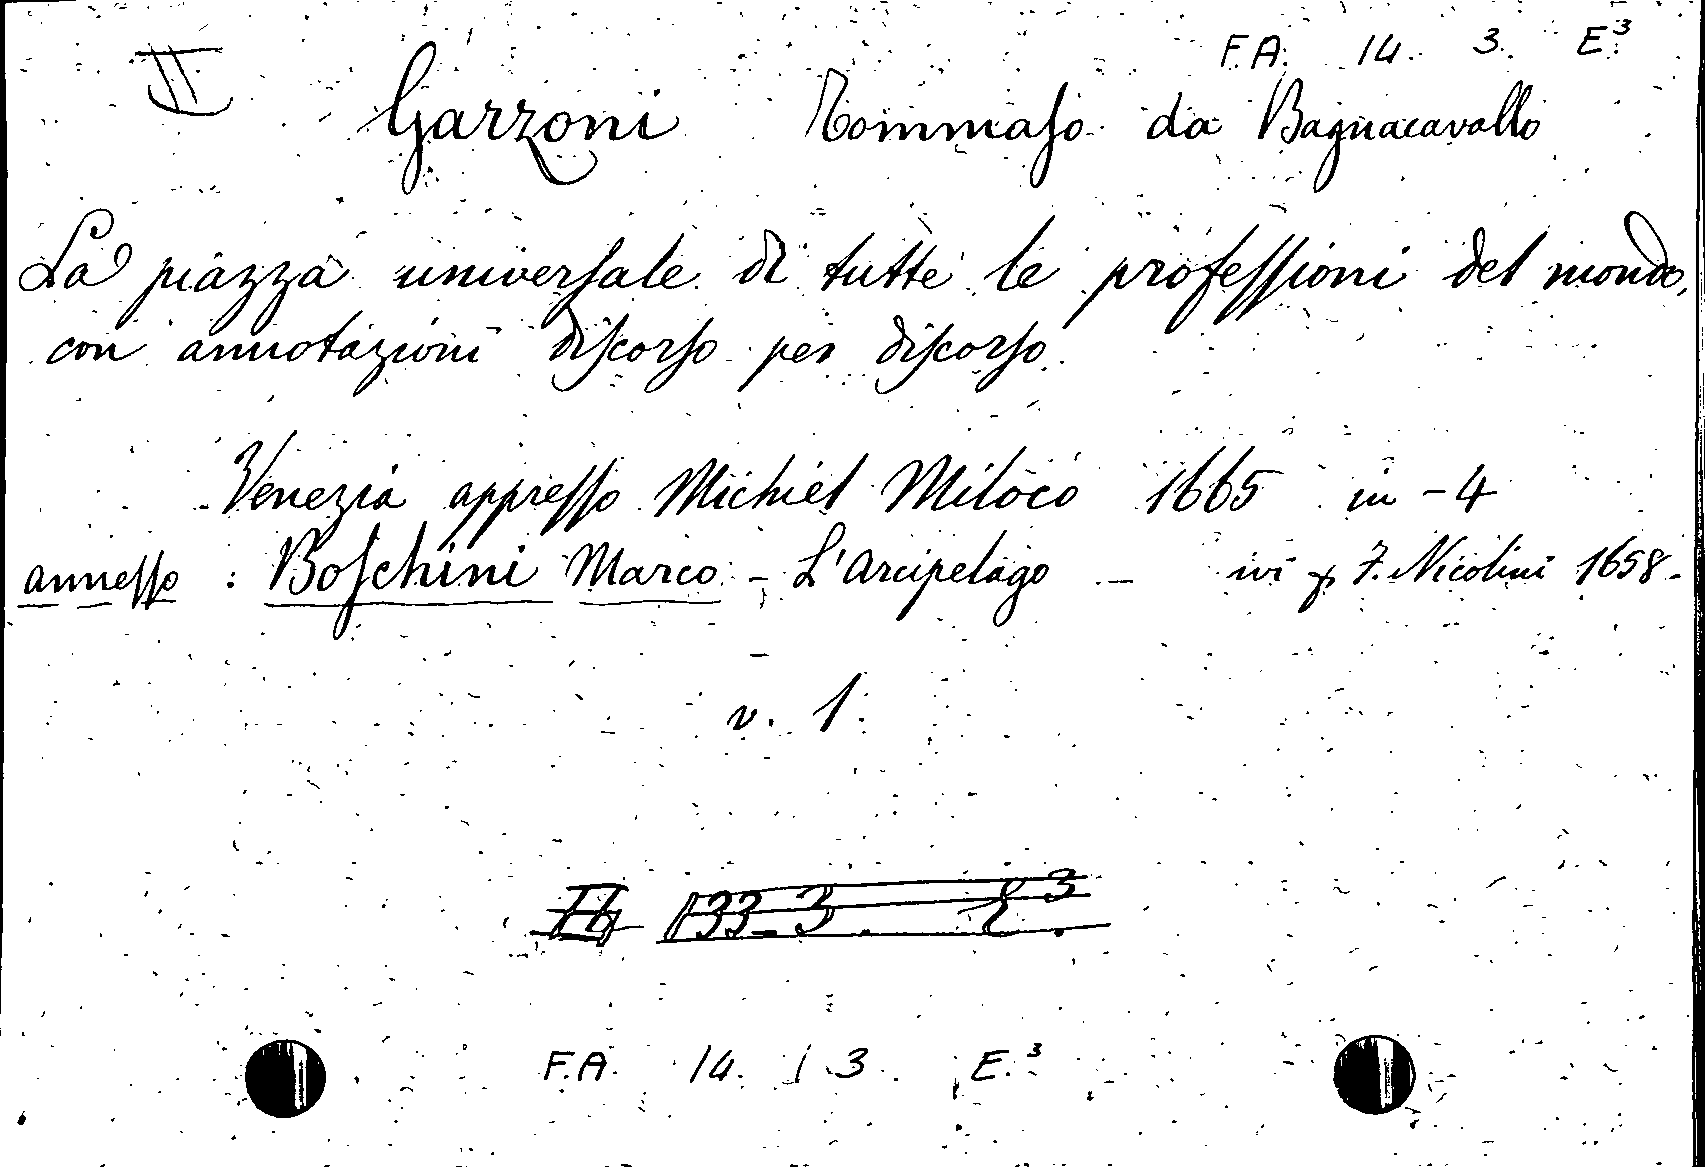 F.A. 14. 3. E.³
II
Garzoni Tommaso da Bagnacavallo
La piazza universale di tutte le professioni del mondo,
con annotazioni discorso per discorso.
Venezia appresso Michiel Miloco 1665 in-4
annesso : Boschini Marco - L'Arcipelago - ivi p F. Nicolini 1658.
v. 1.
133-3. E.³
F.A. 14. 3. E.³